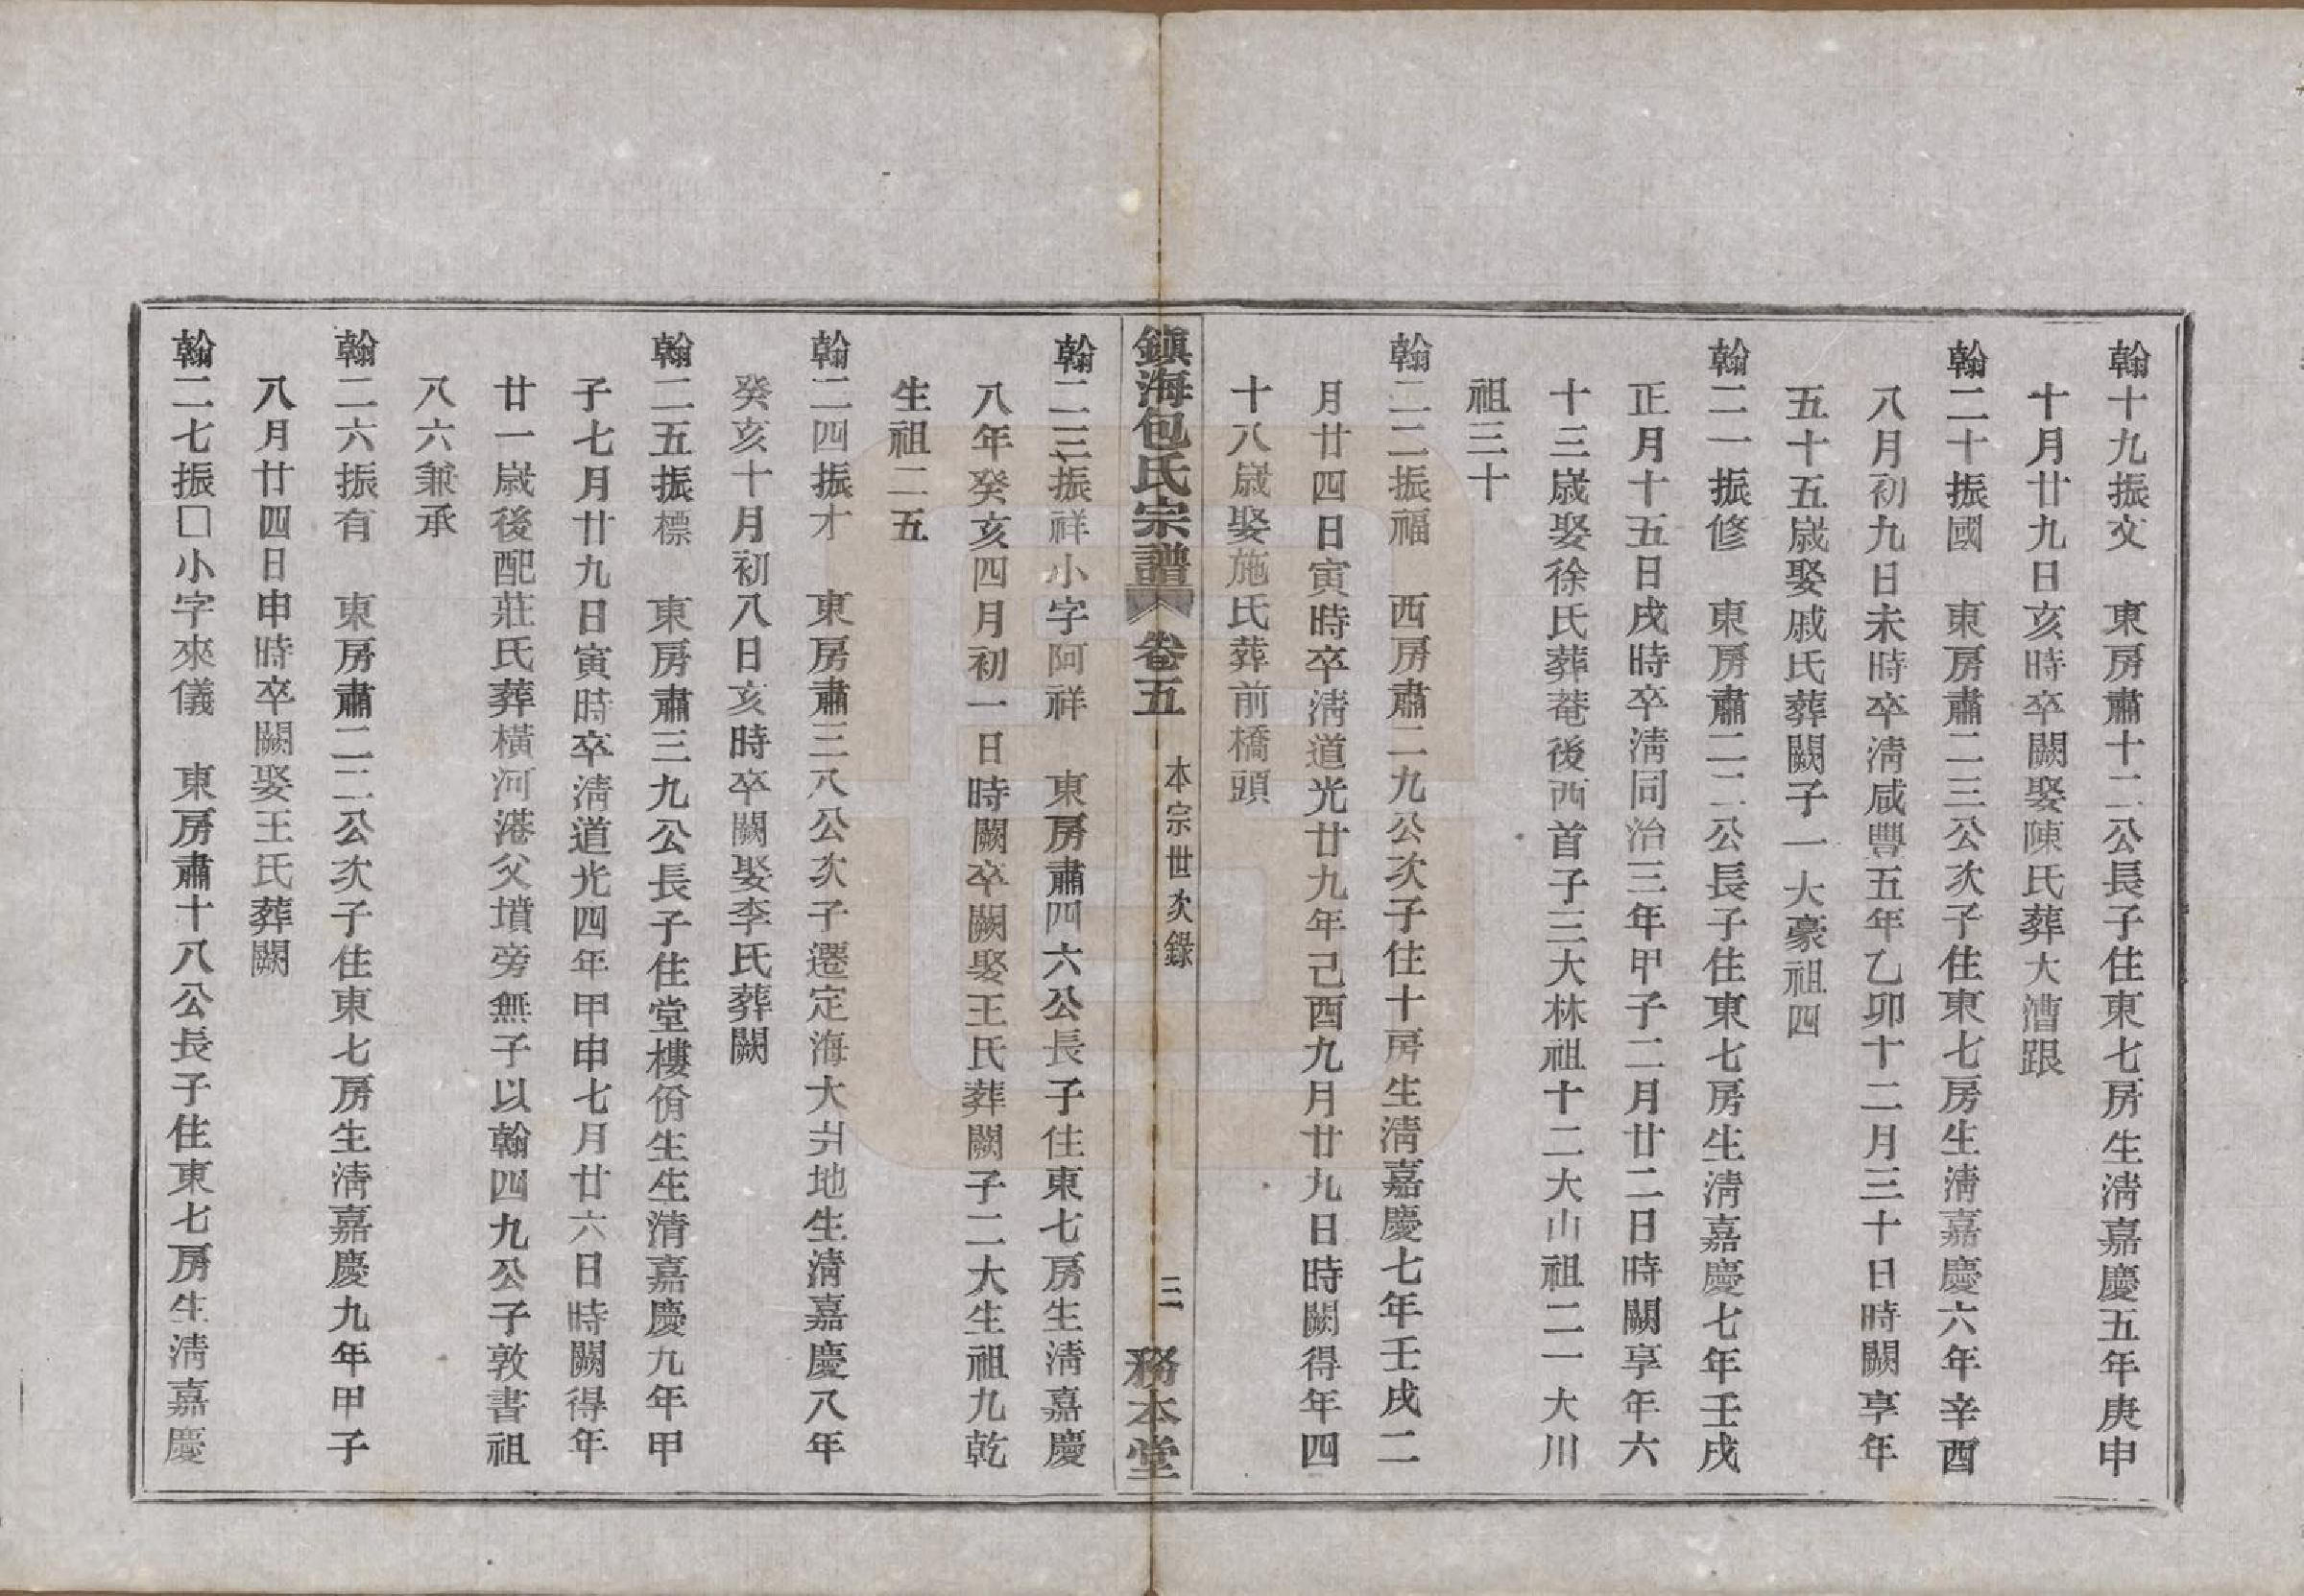 翰十九振文　東房肅十二公長子住東七房生淸嘉慶五年庚申
十月廿九日亥時卒闕娶陳氏葬大漕跟
翰二十振國　東房肅二三公次子住東七房生淸嘉慶六年辛酉
八月初九日未時卒淸咸豐五年乙卯十二月三十日時闕享年
五十五歲娶戚氏葬闕子一大豪祖四
翰二一振修　東房肅二二公長子住東七房生淸嘉慶七年壬戌
正月十五日戌時卒淸同治三年甲子二月廿二日時闕享年六
十三歲娶徐氏葬菴後西首子三大林祖十二大山祖二一大川
祖三十
翰二二振福　西房肅二九公次子住十房生淸嘉慶七年壬戌二
月廿四日寅時卒淸道光廿九年己酉九月廿九日時闕得年四
十八歲娶施氏葬前橋頭
鎭海包氏宗譜　卷五　本宗世次錄　三　務本堂
翰二三振祥小字阿祥　東房肅四六公長子住東七房生淸嘉慶
八年癸亥四月初一日時闕卒闕娶王氏葬闕子二大生祖九乾
生祖二五
翰二四振才　東房肅三八公次子遷定海大丼地生淸嘉慶八年
癸亥十月初八日亥時卒闕娶李氏葬闕
翰二五振標　東房肅三九公長子住堂樓偹生生淸嘉慶九年甲
子七月廿九日寅時卒淸道光四年甲申七月廿六日時闕得年
廿一歲後配莊氏葬橫河港父墳旁無子以翰四九公子敦書祖
八六兼承
翰二六振有　東房肅二二公次子住東七房生淸嘉慶九年甲子
八月廿四日申時卒闕娶王氏葬闕
翰二七振□小字來儀　東房肅十八公長子住東七房生淸嘉慶